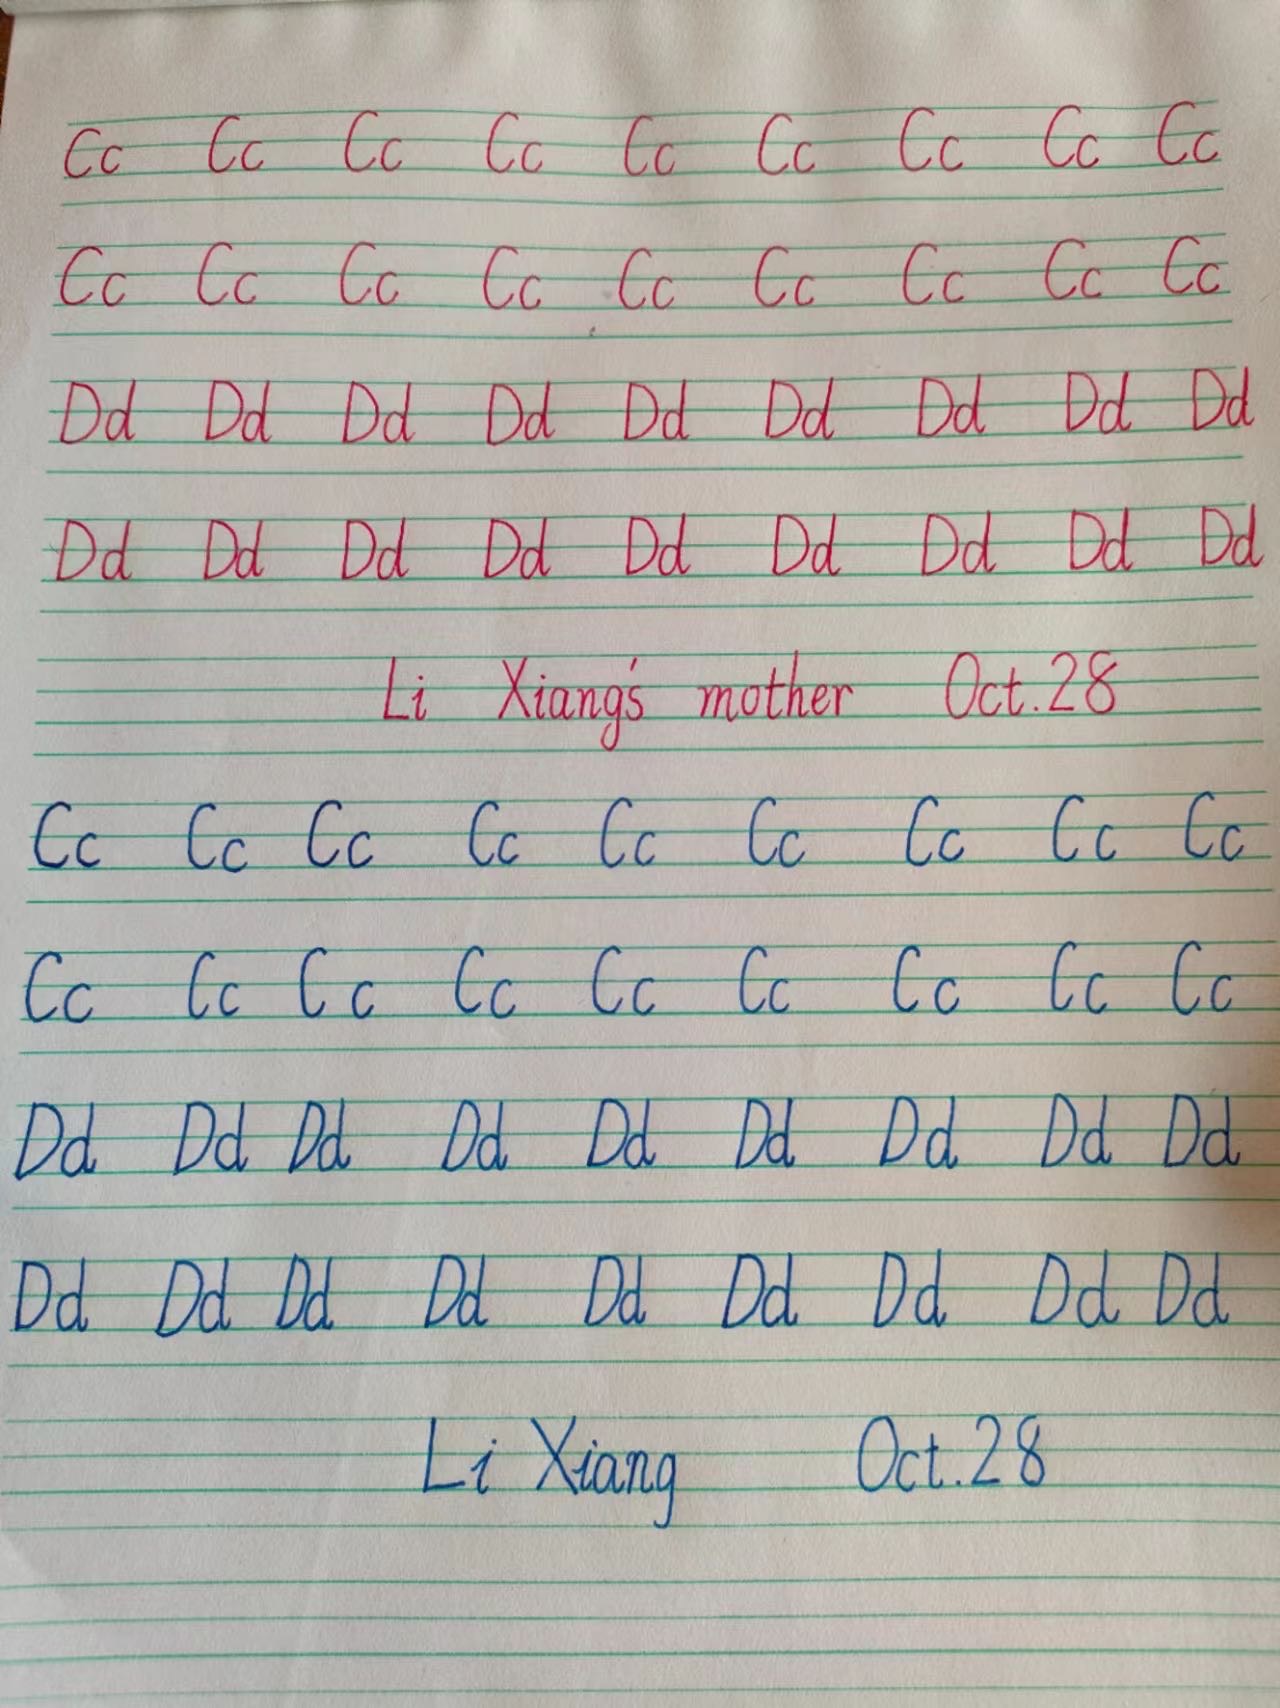 Cc Cc Cc Cc Cc Cc Cc Cc Cc
Cc Cc Cc Cc Cc Cc Cc Cc Cc
Dd Dd Dd Dd Dd Dd Dd Dd Dd
Dd Dd Dd Dd Dd Dd Dd Dd Dd
Li Xiang's mother Oct.28
Cc Cc Cc Cc Cc Cc Cc Cc Cc
Cc Cc Cc Cc Cc Cc Cc Cc Cc
Dd Dd Dd Dd Dd Dd Dd Dd Dd
Dd Dd Dd Dd Dd Dd Dd Dd Dd
Li Xiang Oct.28